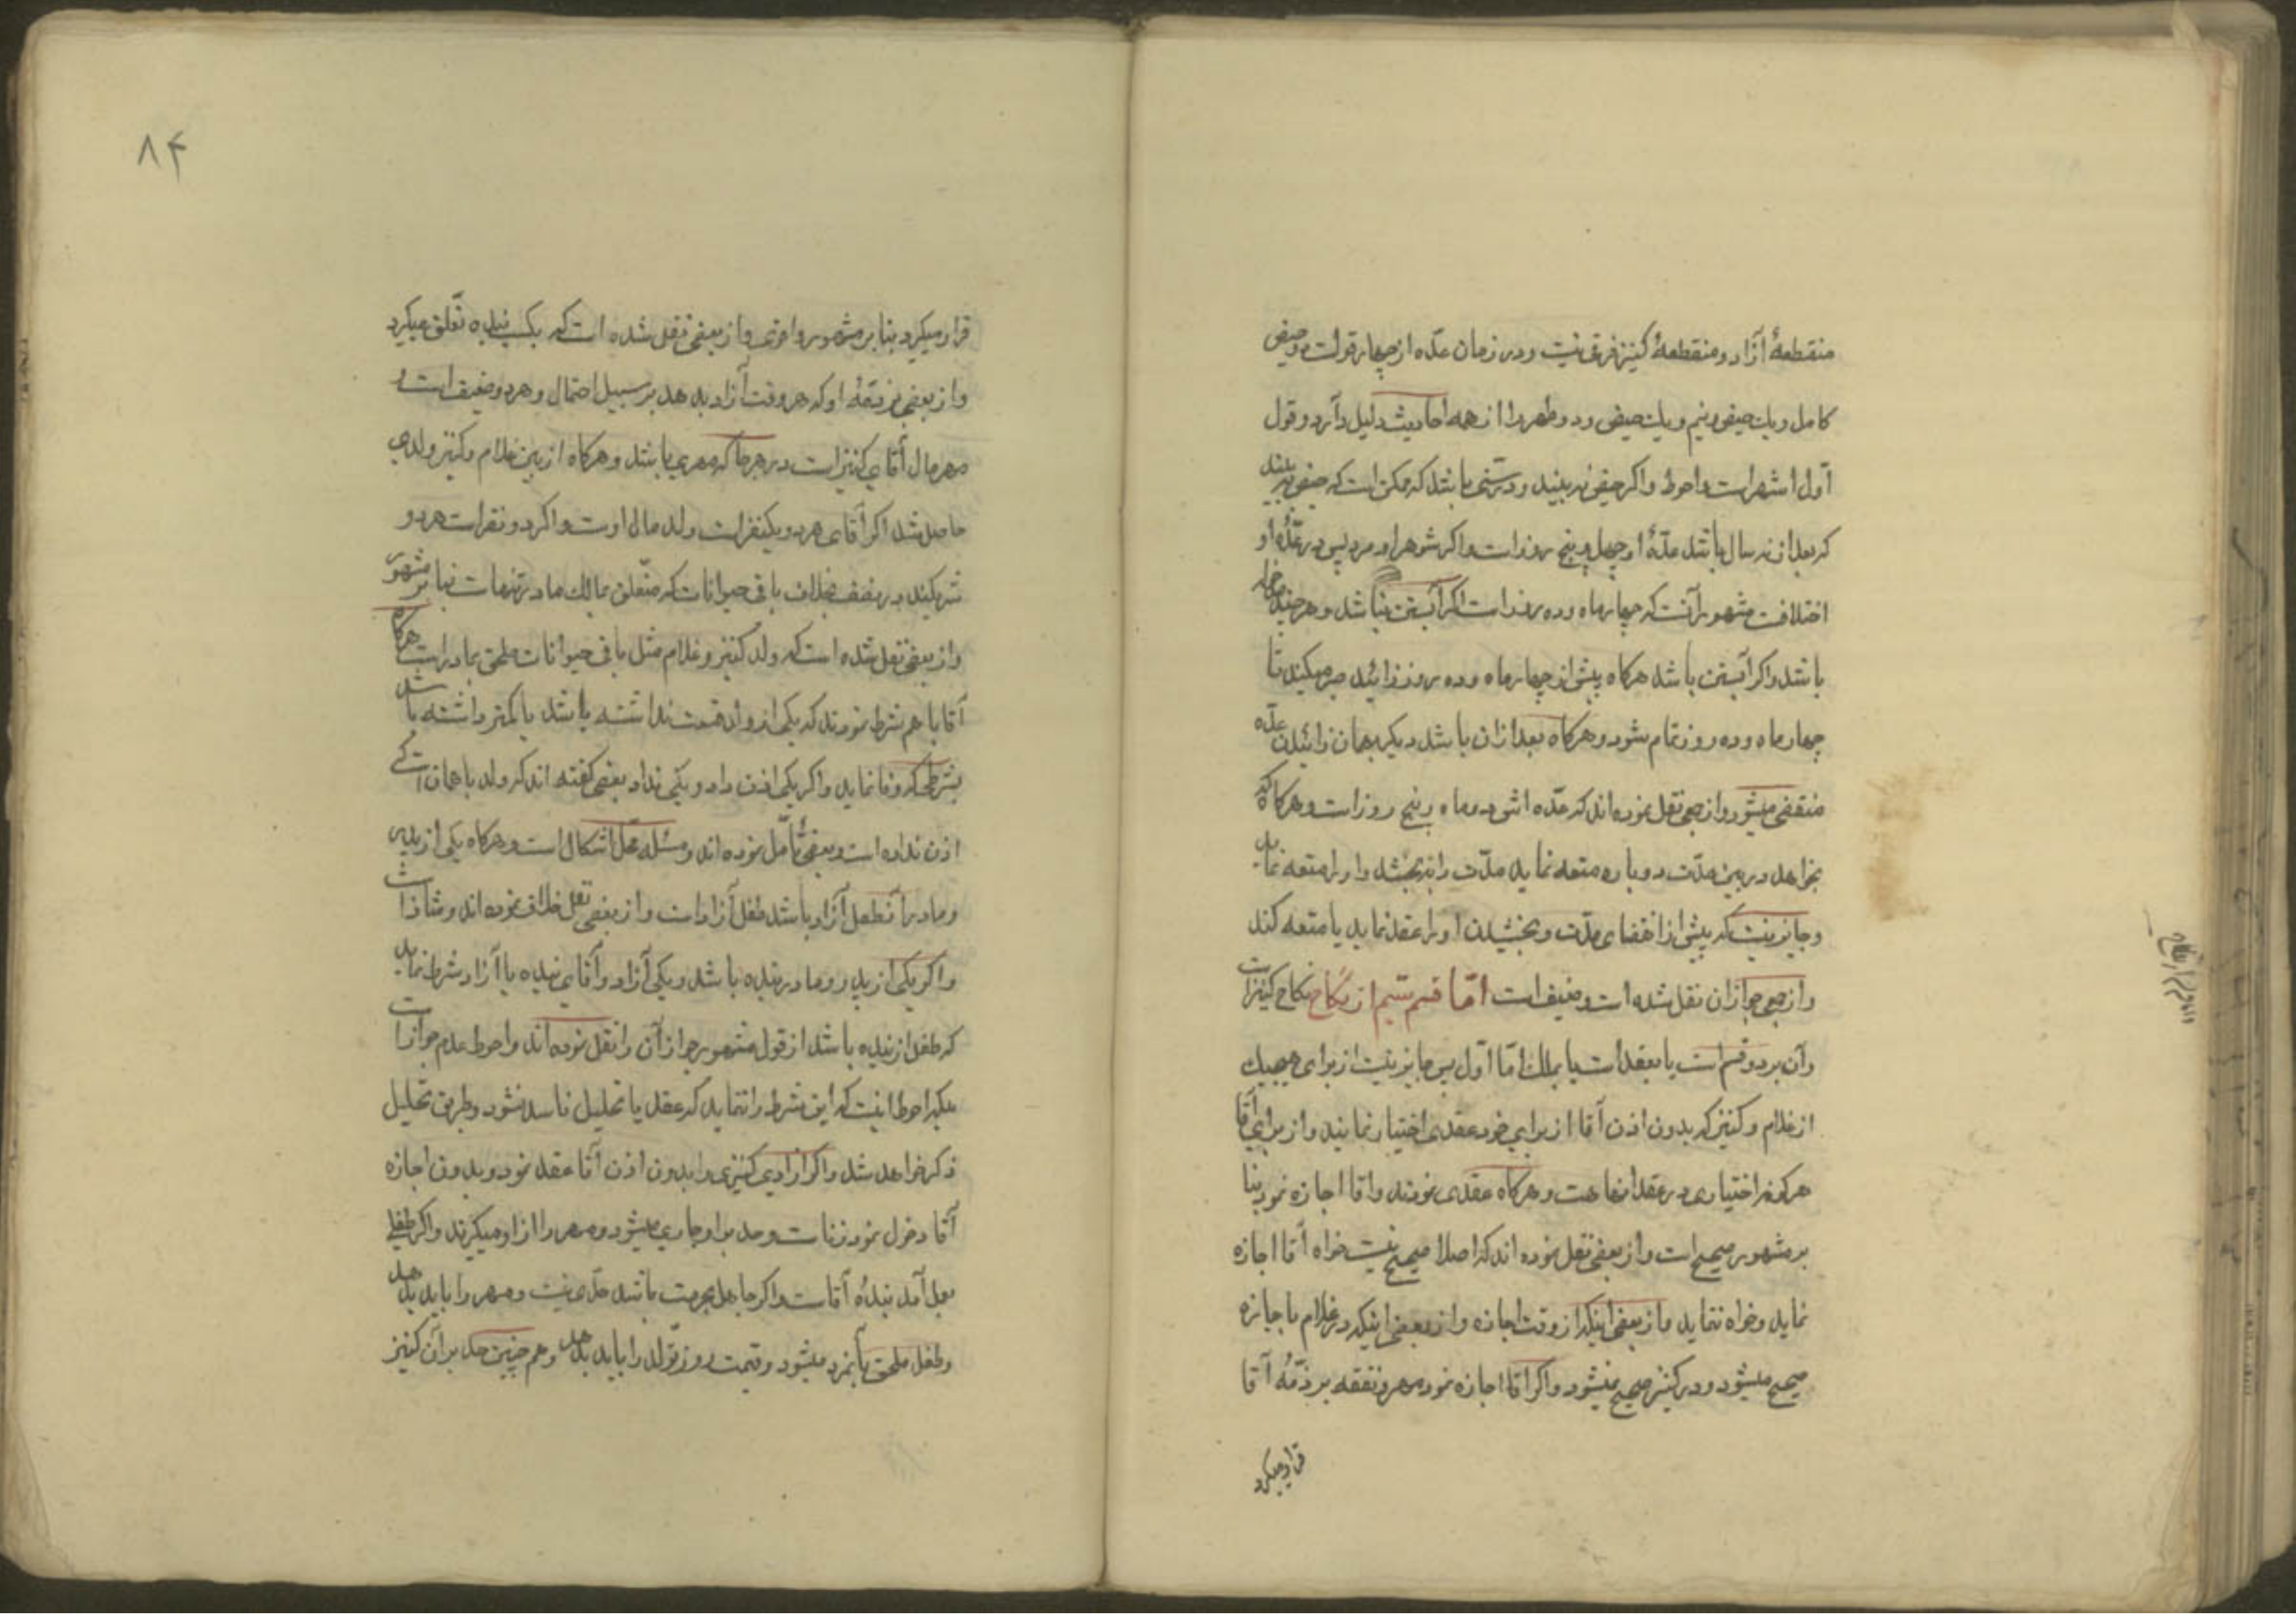 منقطعهٔ آزاد و منقطعهٔ کنیز فرقی نیست و در زمان عدّه از چهار قول است دو حیض
کامل و یک حیض و نیم و یک حیض و دو طهر را از همه احادیث دلیل دارد و قول
اوّل اشهر است و احوط و اگر حیض نه بیند و در سنّی باشد که ممکن است که حیض به بیند
که بعد از نه سال باشد عدّهٔ او چهل و پنج روز است و اگر شوهر او مرد پس در عدّهٔ او
اختلافست مشهور آنست که چهار ماه و ده روز است اگر آبستن نباشد و هر چند
باشد و اگر آبستن باشد هرگاه پیش از چهار ماه و ده روز زائید صبر میکند تا
چهار ماه و ده روز تمام شود و هرگاه بعد از ان باشد دیگر بهمان زائیدن عدّه
منقضی میشود و از جمعی نقل نموده اند که عدّه اش دو ماه و پنج روز است و هرگاه که
بخواهد در بین مدّت دوباره متعه نماید مدّت را به بخشد و او را متعه نماید
و جایز نیست که پیش از انقضای مدّت و بخشیدن او را عقد نماید یا متعه کند
و از جمعی جواز ان نقل شده است و ضعیف است امّا قسم سیم از نکاح نکاح کنیز است
و آن بر دو قسم است یا بعقد است یا بملک امّا اوّل پس جایز نیست از برای هیچیک
از غلام و کنیز که بدون اذن آقا از برای خود عقدی اختیار نمایند و از برای آقا
هرگونه اختیاری در عقد انها هست و هرگاه عقدی نمودند و اقا اجازه نمود بنا
بر مشهور صحیح است و از بعضی نقل نموده اند که اصلا صحیح نیست خواه آقا اجازه
نماید و خواه ننماید و از بعضی اینکه از وقت اجازه و از بعضی اینکه در غلام باجازه
صحیح میشود و در کنیز صحیح نمیشود و اگر اقا اجازه نمود مهر و نفقه بر ذمّهٔ آقا
قرار میگیرد
۸۴
قرار میگیرد بنا بر مشهور و اقوی و از بعضی نقل شده است که بکسب بنده تعلّق میگیرد
و از بعضی بر ذمّهٔ او که هر وقت آزاد بدهد بر سبیل احتمال و هر دو ضعیف است و
مهر مال آقای کنیز است در هر جا که مهری باشد و هرگاه از بین غلام و کنیز ولدی
حاصل شد اگر آقای هر دو یکنفر است ولد مال اوست و اگر دو نفر است هر دو
شریکند در نصف بخلاف باقی حیوانات که متعلّق بمالک مادر تنهاست بنا بر مشهور
و از بعضی نقل شده است که ولد کنیز و غلام مثل باقی حیوانات ملحق بمادر است هرگاه
آقا با هم شرط نمودند که یکی از دو قسمت نداشته باشد یا کمتر داشته باشد
بشرط که وفا نماید و اگر یکی اذن داد و یکی نداد بعضی گفته اند که ولد با همان است که
اذن نداده است و بعضی تأمّل نموده اند و مسئله محلّ اشکال است و هرگاه یکی از پدر
و مادر آن طفل آزاد باشد طفل آزاد است و از بعضی نقل خلاف نموده اند و شاذ است
و اگر یکی از پدر و مادر بنده باشد و یکی آزاد و آقای بنده با آزاد شرط نماید
که طفل از بنده باشد از قول مشهور جواز آن را نقل نموده اند و احوط عدم جواز است
بلکه احوط اینست که این شرط را ننماید که عقد یا تحلیل فاسد نشود و طریق تحلیل
ذکر خواهد شد و اگر آزادی کنیزی را بدون اذن آقا عقد نمود و بدون اجازه
آقا دخول نمود زنا است و حد بر او جاری میشود و مهر را از او میگیرند و اگر طفلی
بعمل آمد بندهٔ آقاست و اگر جاهل بحرمت باشد حدّی نیست و مهر را باید بدهد
و طفل ملحق بآنمرد میشود و قیمت روز تولّد را باید بدهد و هم چنین حد بر آن کنیز